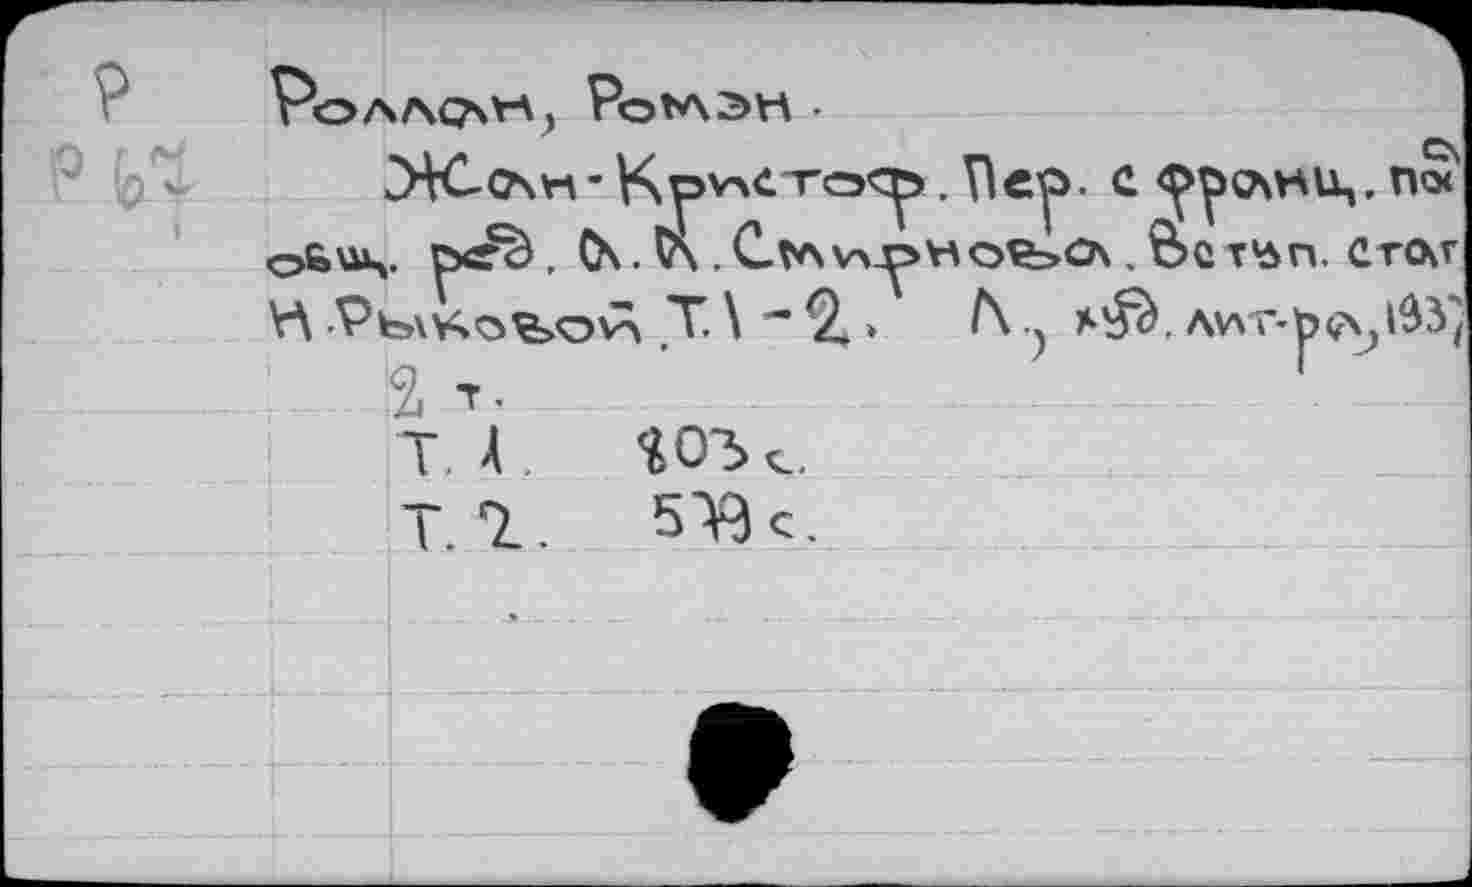 Р
Роллан, Ромэн.
Р 67
Жан-Кристоф. Пер. с франц. под
общ. ред. А.А. Смирнова. Встъп. стат
И. Рыковой. Т.1-2. Л., худ. лит-ра, 1937
2 т.
Т. 1. 803 с.
Т. 2. 579 с.